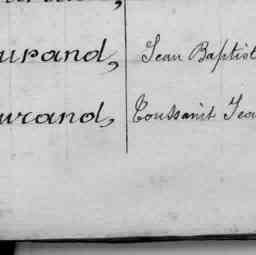 urand, Jean Baptist
urand, Toussaint Jea